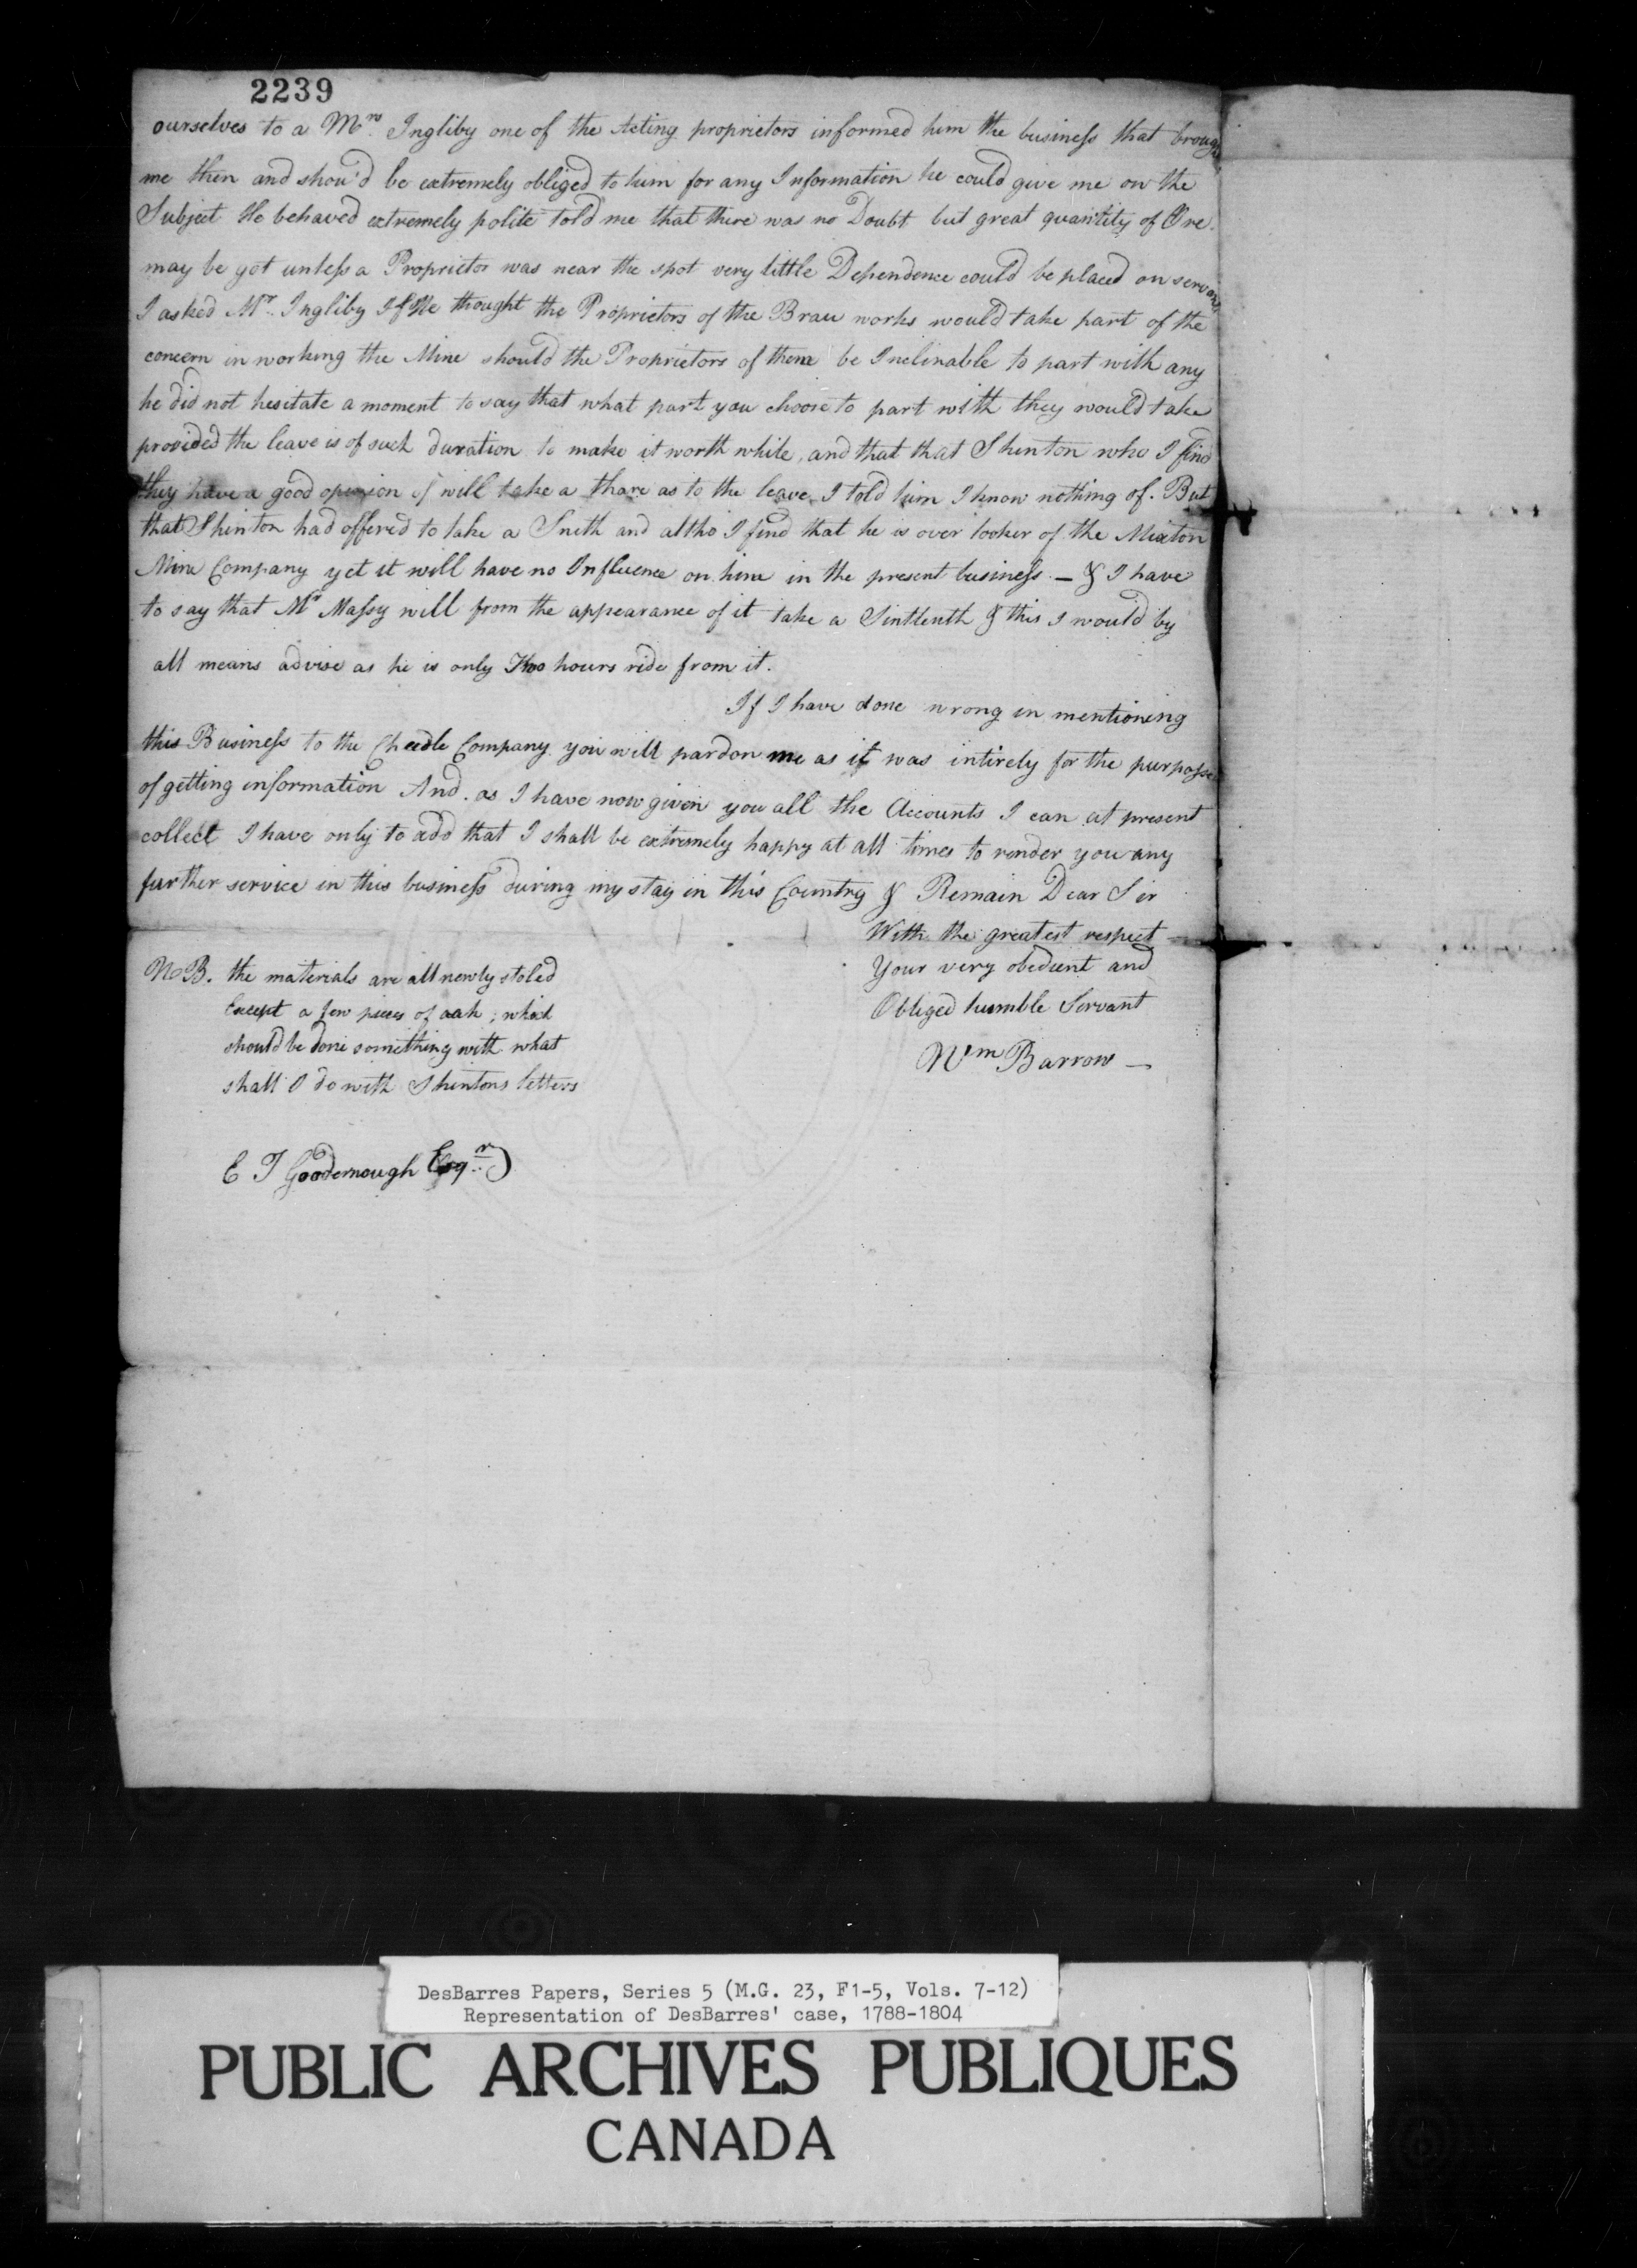 2239
ourselves to a Mr. Ingliby one of the Acting proprietors informed him the business that
me then and shou'd be extremely obliged to him for any Information he could give me on the
Subject He behaved extremely polite told me that there was no Doubt but great quantity of Ore.
may be got unless a Proprietor was near the spot very little Dependence could be placed on
I asked Mr. Ingliby If He thought the Proprietors of the Brau works would take part of the
concern in working the Mine should the Proprietors of them be Inclinable to part with any
he did not hesitate a moment to say that what part you choose to part with they would take
provided the leave is of such duration to make it worth while, and that that Shinton who I find
they have a good opinion of will take a share as to the leave I told him I know nothing of. But
that Shinton had offered to take a and altho I find that he is over looker of the Mixton
Mine Company yet it will have no Influence on him in the present business. — & I have
to say that Mr Massy will from the appearance of it take a & this I would by
all means advise as he is only Two hours ride from it.
If I have done wrong in mentioning
this Business to the Cheedle Company you will pardon me as it was intirely for the purpose
of getting information And. as I have now given you all the Accounts I can at present
collect I have only to add that I shall be extremely happy at all times to render you any
further service in this business during my stay in this Country & Remain Dear Sir
With the greatest respect
Your very obedient and
Obliged humble Servant
Wm Barrow —
NB. the materials are all newly stoled
Except a few pieces of oak; which
should be done something with what
shall I do with Shintons letters
E T Goodenough Esqr
DesBarres Papers, Series 5 (M.G. 23, F1-5, Vols. 7-12)
Representation of DesBarres' case, 1788-1804
PUBLIC ARCHIVES PUBLIQUES
CANADA